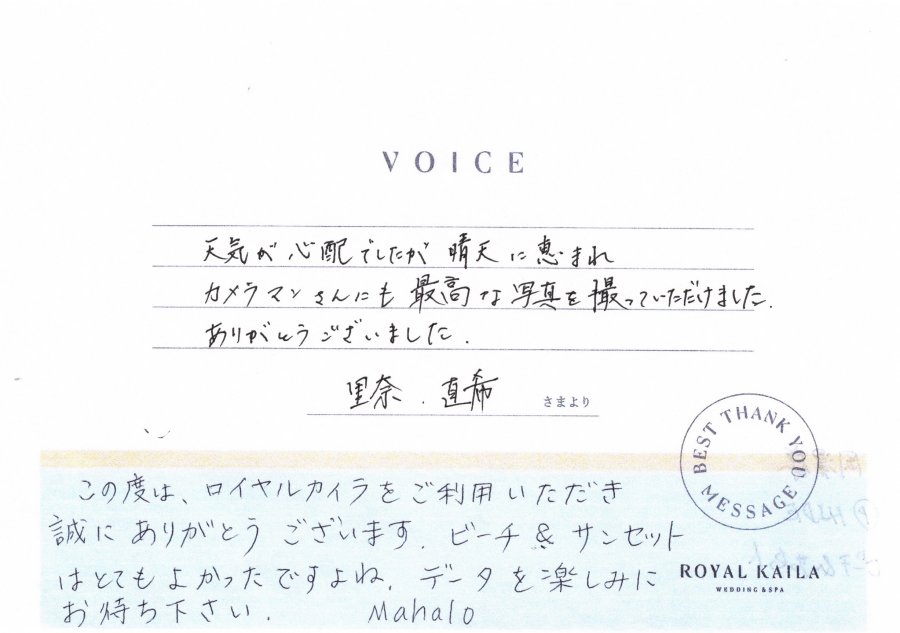 VOICE
天気が心配でしたが晴天に恵まれ
カメラマンさんにも最高な写真を撮っていただけました.
ありがとうございました.
里奈.直希 さまより
BEST THANK YOU MESSAGE
この度は、ロイヤルカイラをご利用いただき
誠にありがとうございます. ビーチ & サンセット
はとてもよかったですよね. データを楽しみに
お待ち下さい. Mahalo
ROYAL KAILA
WEDDING & SPA